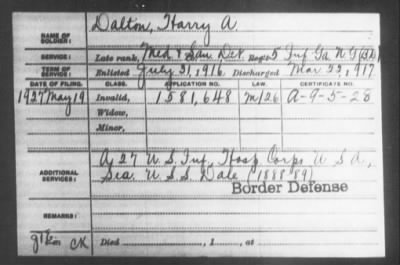 Dalton, Harry A.
NAME OF SOLDIER:
SERVICE: Late rank, Med & San Det Reg't 5 Inf Ga N.G. (B.D.)
TERM OF SERVICE: Enlisted July 31, 1916 Discharged Mar 22, 1917
DATE OF FILING. CLASS. APPLICATION NO. LAW. CERTIFICATE NO.
1927 May 19 Invalid, 1,581,648 A-9-5-28
Widow,
Minor,
ADDITIONAL SERVICES: A 27 U.S. Inf, Hosp Corps U S A,
Sea. U.S.S. Dale (1888-89)
Border Defense
REMARKS:
CK Died , 1 , at